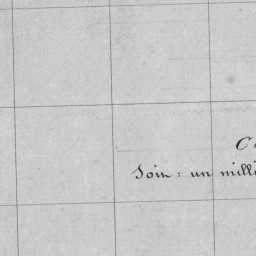 C
Soin : un mill